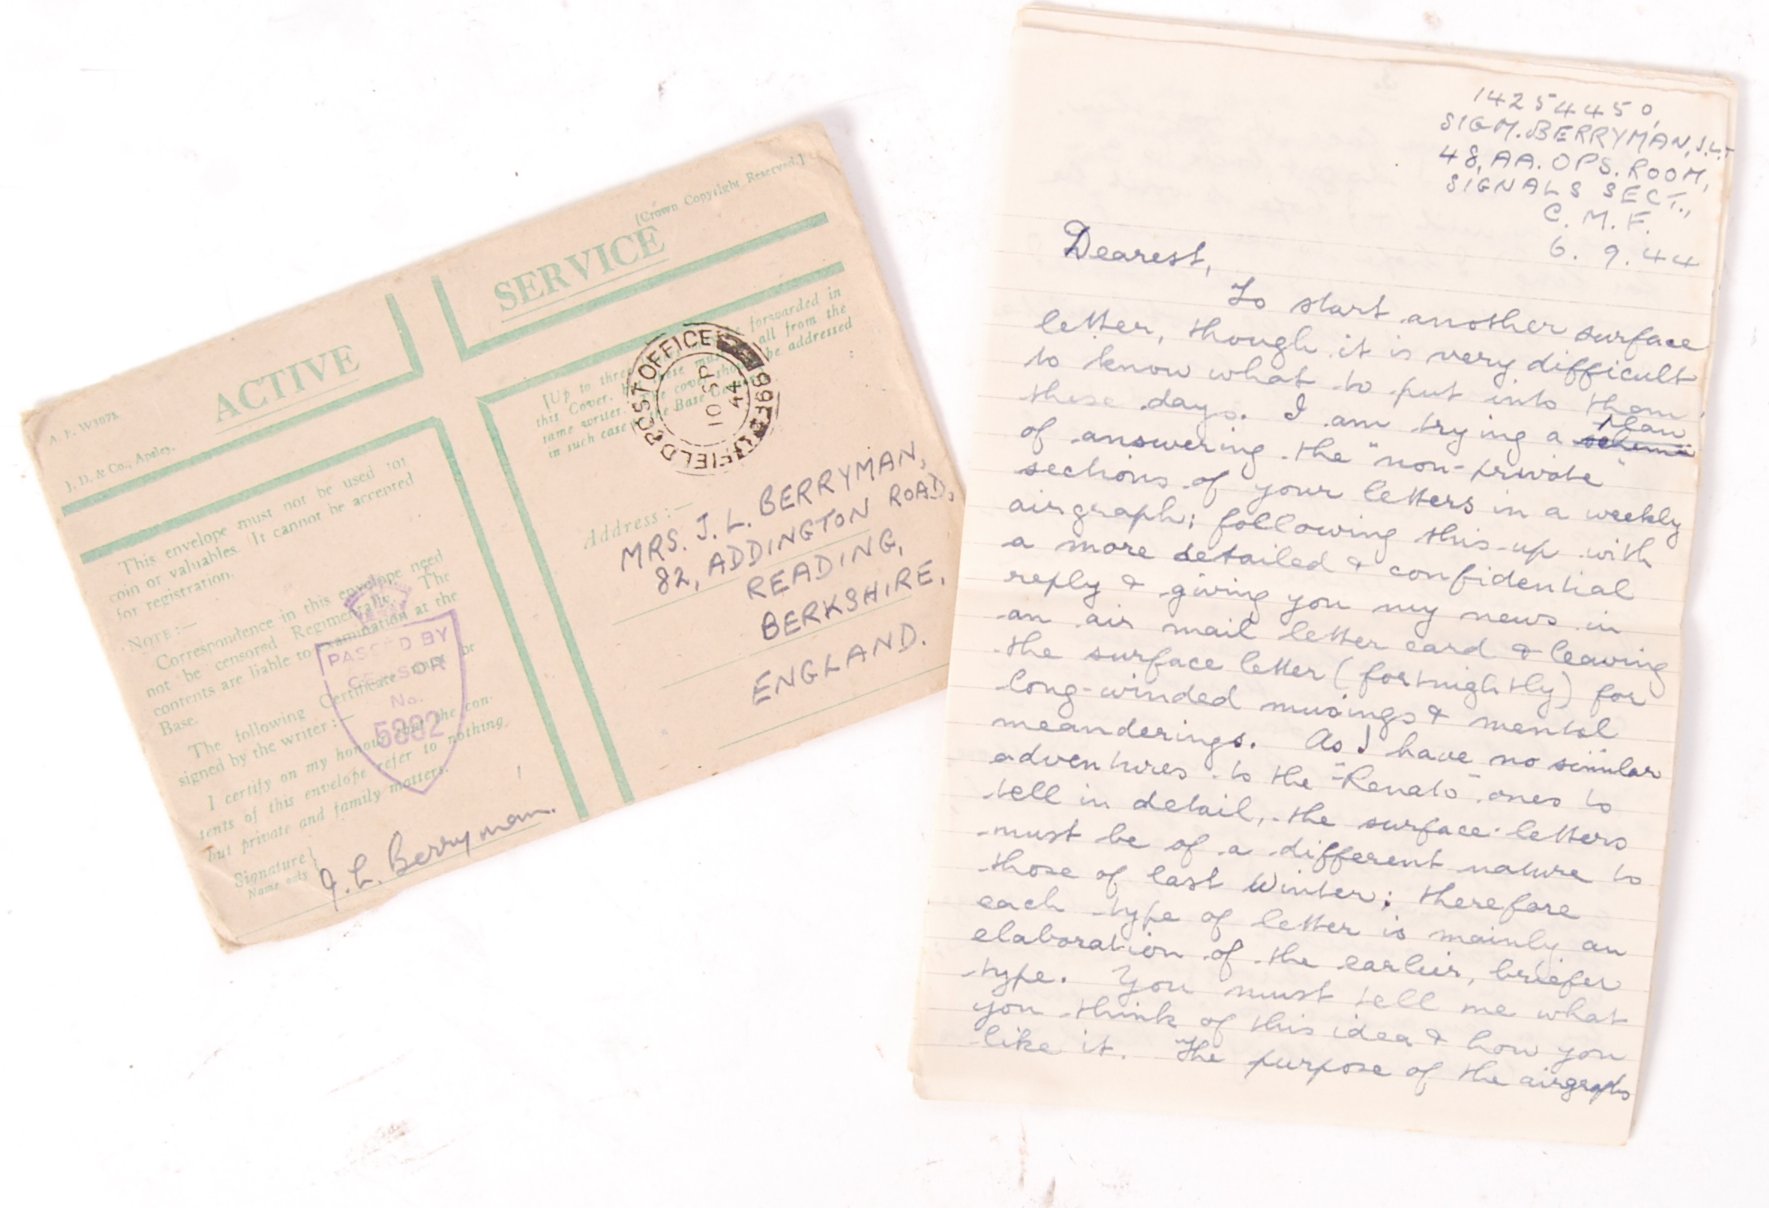 A. F. W3078.
J. D. & Co., Apsley.
[Crown Copyright Reserved.]
ACTIVE SERVICE
This envelope must not be used for
coin or valuables. It cannot be accepted
for registration.
NOTE:—
Correspondence in this envelope need
not be censored Regimentally. The
contents are liable to examination at the
Base.
The following Certificate must be
signed by the writer:—
I certify on my honour that the con-
tents of this envelope refer to nothing
but private and family matters.
Signature
Name only
J. L. Berryman.
PASSED BY
CENSOR
No.
5892
[Up to three forwarded in
this Cover. all from the
same writer. be addressed
in such case the Base
FIELD POST OFFICE
10 SP
44
Address:—
MRS. J. L. BERRYMAN,
82, ADDINGTON ROAD,
READING,
BERKSHIRE,
ENGLAND.
14254450,
SIGM. BERRYMAN, J.L.
48, AA. OPS. ROOM,
SIGNALS SECT.,
C. M. F.
6. 9. 44
Dearest,
To start another surface
letter, though it is very difficult
to know what to put into them
these days. I am trying a scheme plan
of answering the "non-private"
sections of your letters in a weekly
airgraph; following this up with
a more detailed & confidential
reply & giving you my news in
an air mail letter card & leaving
the surface letter (fortnightly) for
long-winded musings & mental
meanderings. As I have no similar
adventures to the "Renato" ones to
tell in detail, the surface letters
must be of a different nature to
those of last Winter; therefore
each type of letter is mainly an
elaboration of the earlier, briefer
type. You must tell me what
you think of this idea & how you
like it. The purpose of the airgraphs